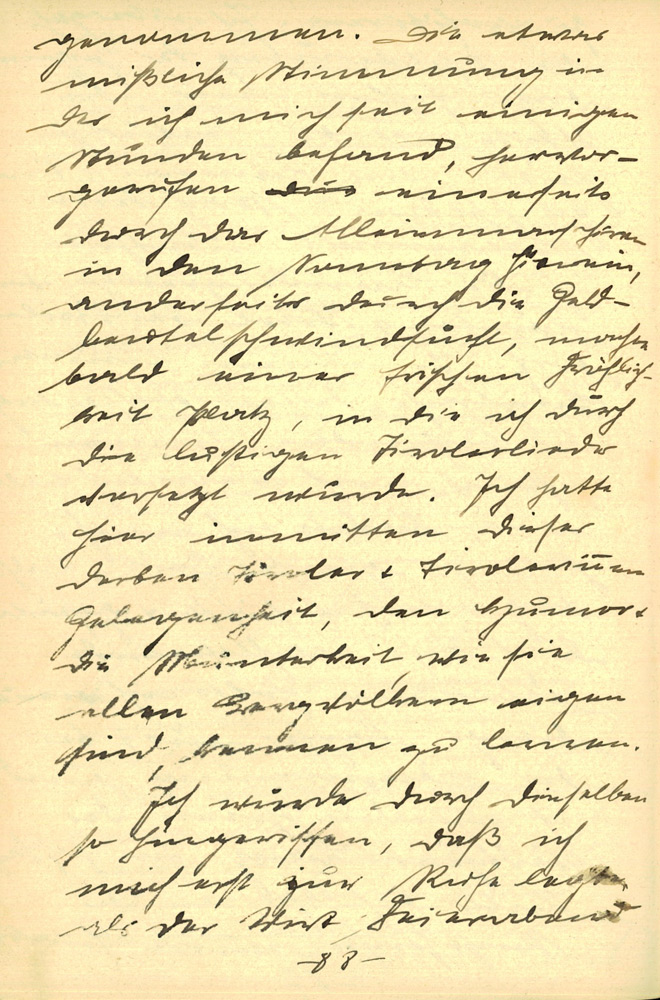 genommen. Die etwas
mißliche Stimmung in
der ich mich seit einigen
Stunden befand, hervor-
gerufen aus einerseits
durch das Alleinmarschieren
in den Sonntag hinein,
anderseits durch die Geld-
beutelschwindsucht, machte
bald einer frischen Fröhlich-
keit Platz, in die ich durch
die lustigen Tirolerlieder
versetzt wurde. Ich hatte
hier inmitten dieser
derben Tiroler & Tirolerinnen
Gelegenheit, den Humor &
die Munterkeit, wie sie
allen Bergvölkern eigen
sind, kennen zu lernen.
Ich wurde durch dieselben
so hingerissen, daß ich
mich erst zur Ruhe legte,
als der Wirt Feierabend
-88-